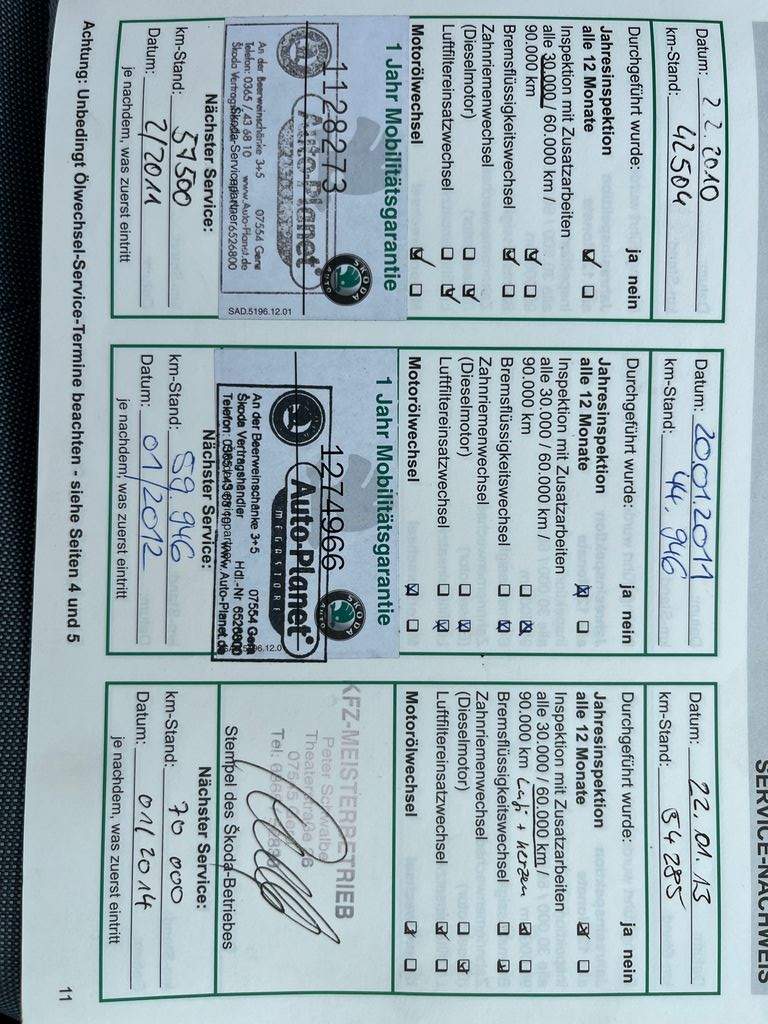 SERVICE-NACHWEIS
Datum: 2 2. 2010
km-Stand: 42504
Durchgeführt wurde: ja nein
Jahresinspektion
alle 12 Monate
Inspektion mit Zusatzarbeiten
alle 30.000 / 60.000 km /
90.000 km
Bremsflüssigkeitswechsel
Zahnriemenwechsel
(Dieselmotor)
Luftfiltereinsatzwechsel
Motorölwechsel
1 Jahr Mobilitätsgarantie
SKODA
AUTO
1128273
Auto-Planet
An der Beerweinschänke 3+5 07554 Gera
Telefon: 0365 / 43 68 10 www.Auto-Planet.de
Škoda-Servicepartner 6526800
SAD.5196.12.01
Nächster Service:
km-Stand: 57500
Datum: 2/2011
je nachdem, was zuerst eintritt
Datum: 20012011
km-Stand: 44. 946
Durchgeführt wurde: ja nein
Jahresinspektion
alle 12 Monate
Inspektion mit Zusatzarbeiten
alle 30.000 / 60.000 km /
90.000 km
Bremsflüssigkeitswechsel
Zahnriemenwechsel
(Dieselmotor)
Luftfiltereinsatzwechsel
Motorölwechsel
1 Jahr Mobilitätsgarantie
SKODA
AUTO
1274966
Auto-Planet
MEGASTORE
An der Beerweinschänke 3+5 07554 Gera
Škoda Vertragshändler Hdl.-Nr 6526800
www.Auto-Planet.de
Nächster Service:
km-Stand: 59. 946
Datum: 01/2012
je nachdem, was zuerst eintritt
Datum: 22. 01. 13
km-Stand: 54285
Durchgeführt wurde: ja nein
Jahresinspektion
alle 12 Monate
Inspektion mit Zusatzarbeiten
alle 30.000 / 60.000 km /
90.000 km Lufi + Kerzen
Bremsflüssigkeitswechsel
Zahnriemenwechsel
(Dieselmotor)
Luftfiltereinsatzwechsel
Motorölwechsel
KFZ-MEISTERBETRIEB
Peter Schwalbe
Theaterstraße
Tel.:
Stempel des Škoda-Betriebes
Nächster Service:
km-Stand: 70 000
Datum: 01/2014
je nachdem, was zuerst eintritt
Achtung: Unbedingt Ölwechsel-Service-Termine beachten - siehe Seiten 4 und 5
11